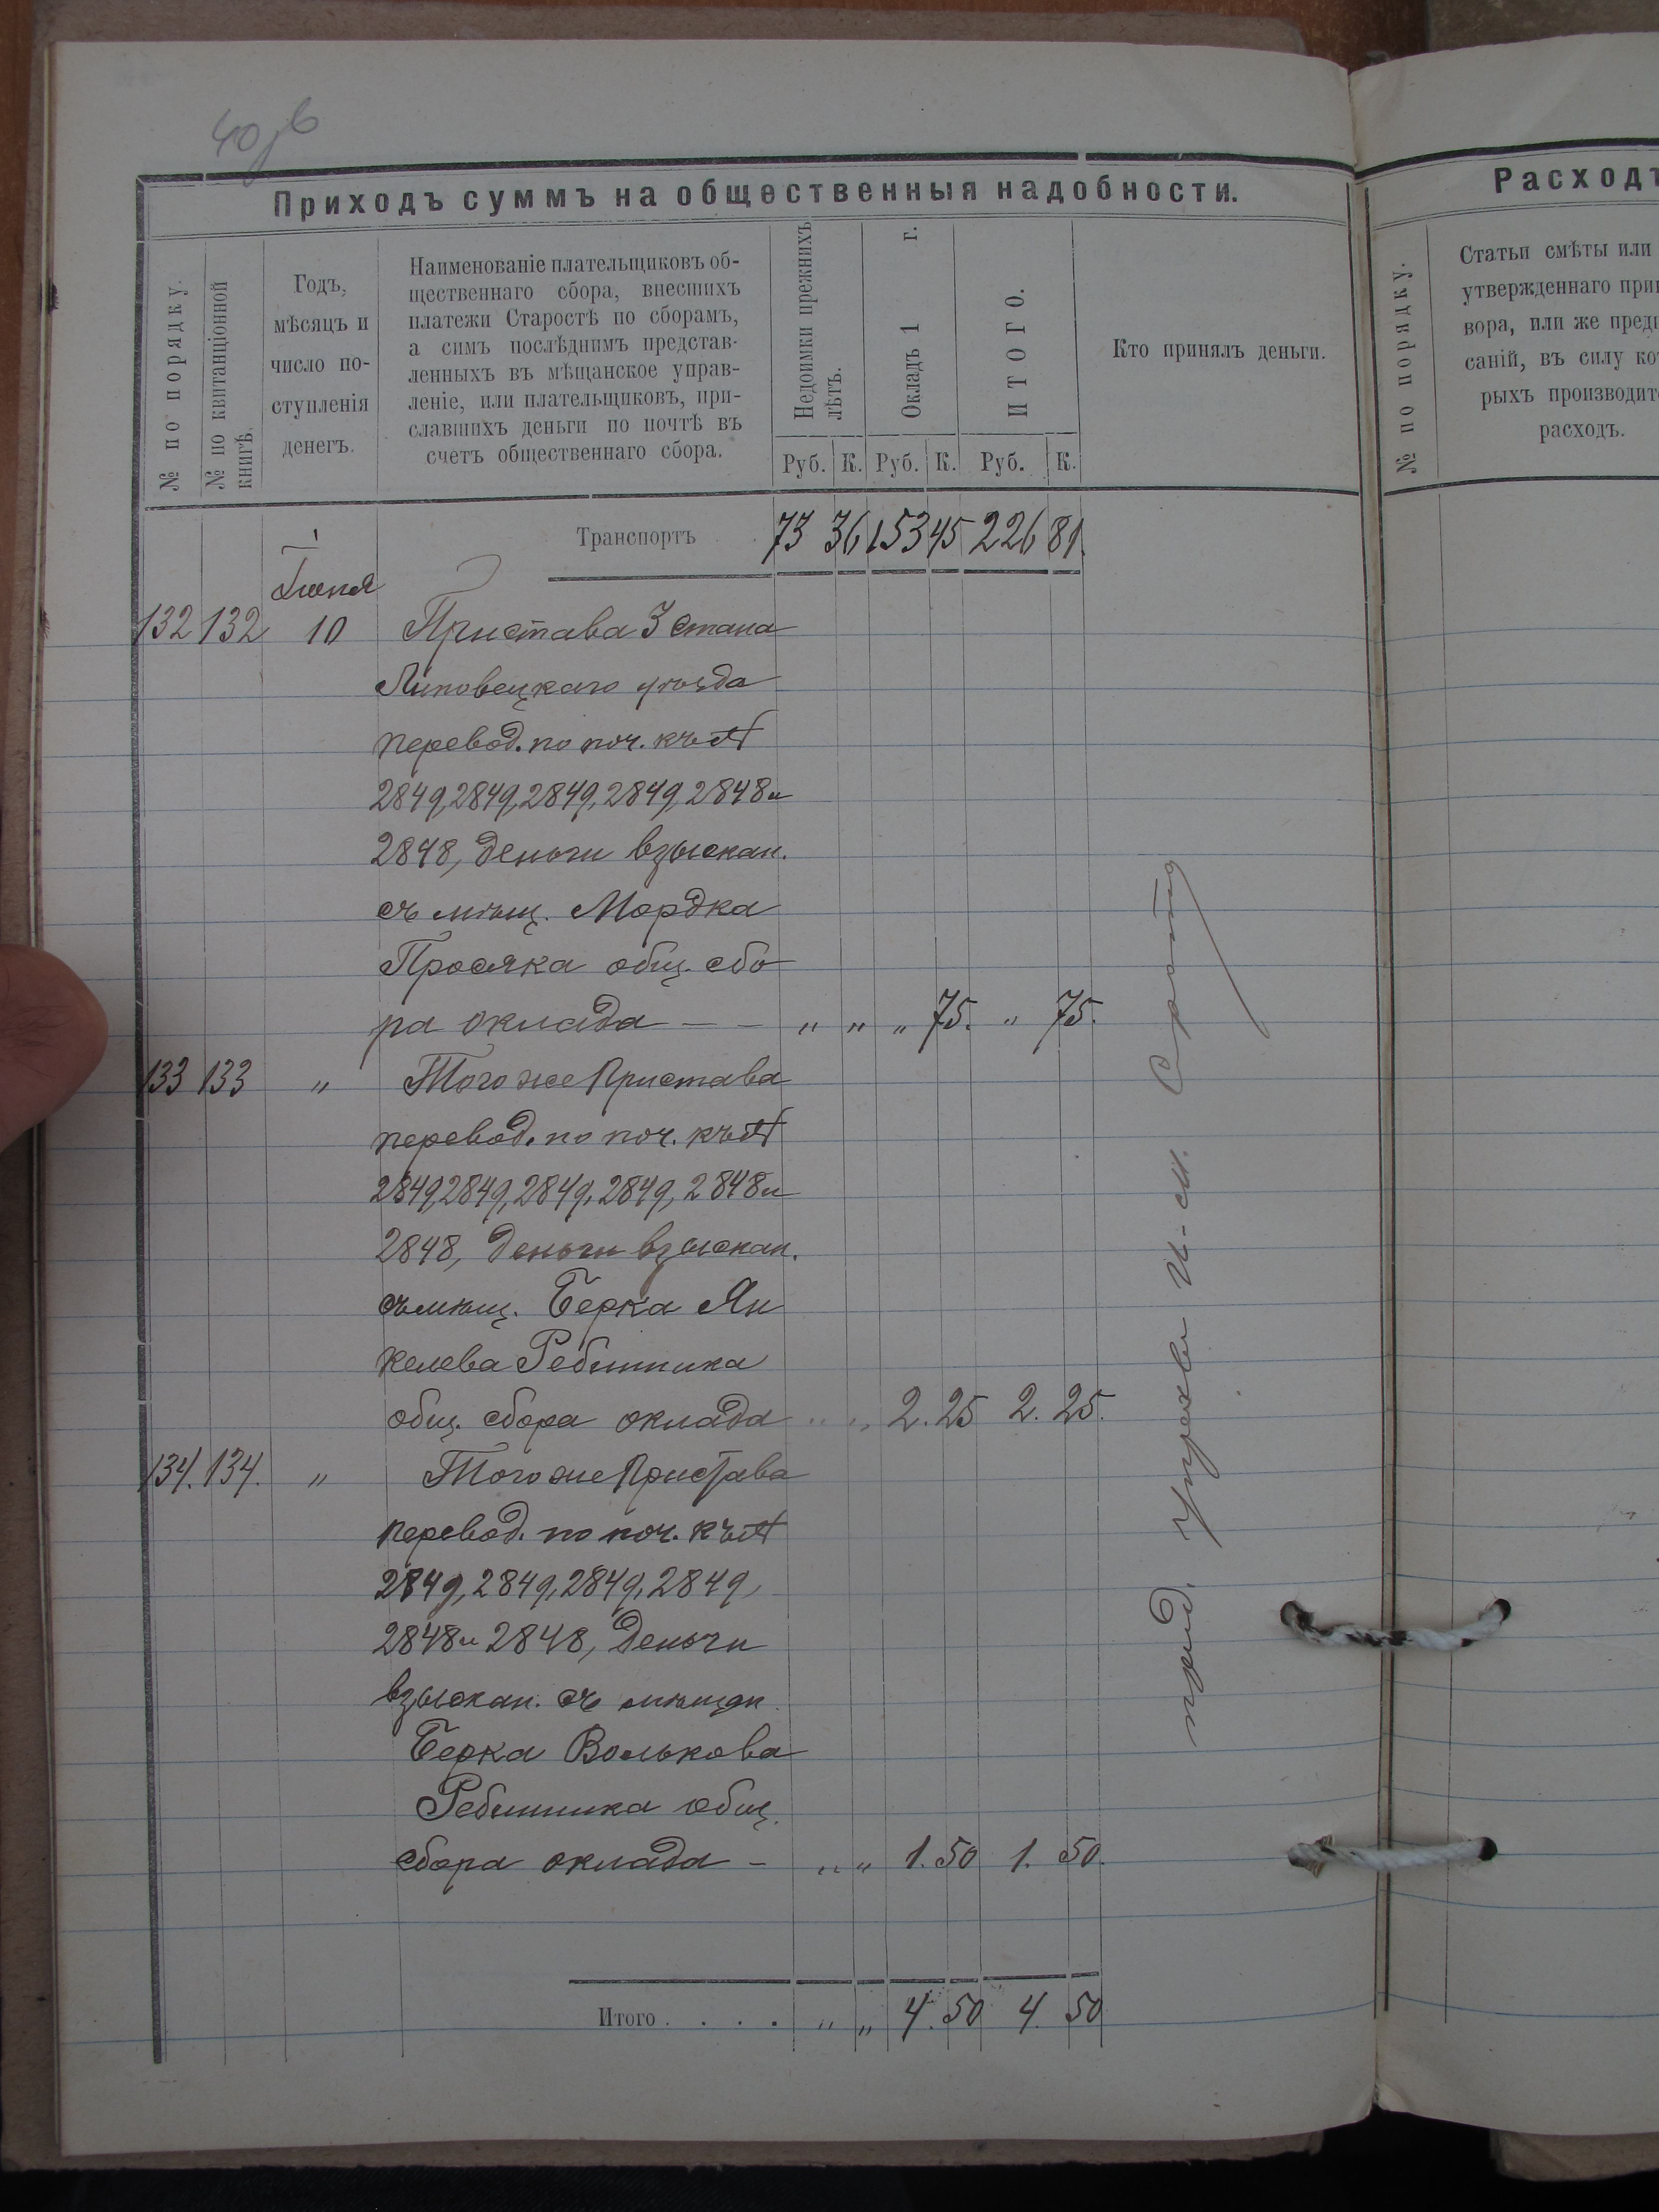 40 об
Приходъ суммъ на общественныя надобности.
№ по порядку.
№ по квитанціонной
книгѣ.
Годъ,
мѣсяцъ и
число по-
ступленія
денегъ.
Наименованіе плательщиковъ об-
щественнаго сбора, внесшихъ
платежи Старостѣ по сборамъ,
а симъ послѣднимъ представ-
ленныхъ въ мѣщанское управ-
леніе, или плательщиковъ, при-
славшихъ деньги по почтѣ въ
счетъ общественнаго сбора.
Недоимки прежнихъ
лѣтъ.
Окладъ 1 г.
ИТОГО.
Руб. К. Руб. К. Руб. К.
Кто принялъ деньги.
Транспортъ 73 36 153 45 226 81.
Іюня
132 132 10 Пристава 3 стана
Липовецкаго уѣзда
перевод. по поч. къ №
2849, 2849, 2849, 2849, 2848 и
2848, деньги взыскан.
съ мѣщ. Мордка
Просяка общ. сбо
ра оклада — — " " " 75. " 75.
133 133 " Того же Пристава
перевод. по поч. къ №
2849, 2849, 2849, 2849, 2848 и
2848, деньги взыскан.
съ мѣщ. Берка Ян
келева Ребинника
общ. сбора оклада " " 2. 25 2. 25.
134. 134. " Того же Пристава
перевод. по поч. къ №
2849, 2849, 2849, 2849,
2848 и 2848, деньги
взыскан. съ мѣщан.
Берка Волькова
Ребинника общ.
сбора оклада — " " 1. 50 1. 50.
Итого . . . . " " 4. 50 4. 50
Расходъ
№ по порядку.
Статьи смѣты или
утвержденнаго при
вора, или же пред
саній, въ силу ко
рыхъ производит
расходъ.